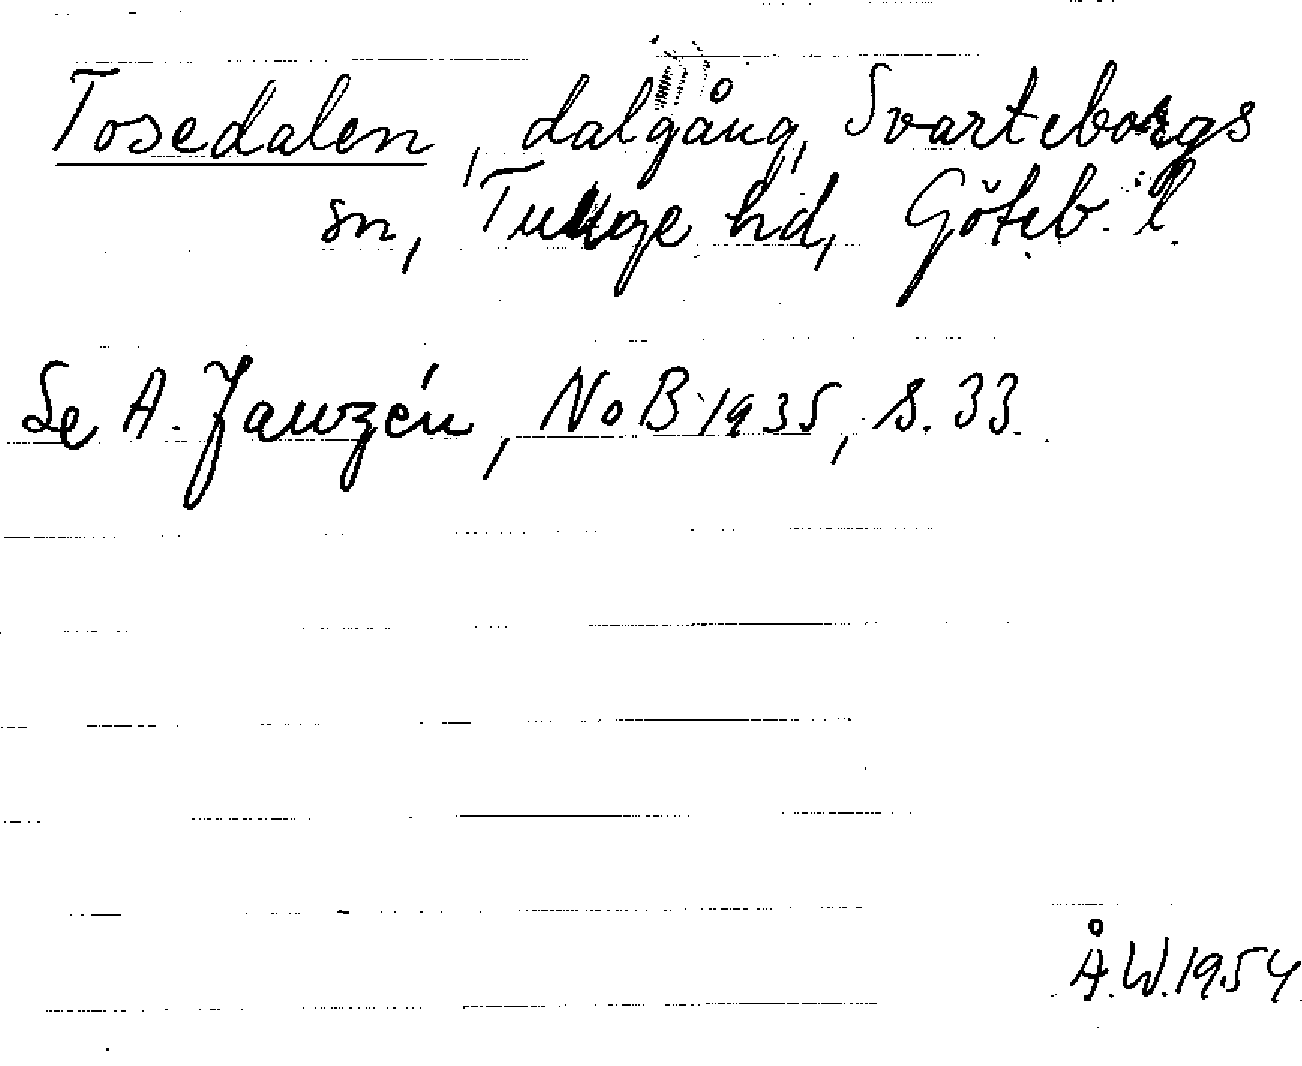 Tosedalen, dalgång, Svarteborgs
sn, Tunge hd, Göteb. l.
Se A. Janzén, NoB 1935, s. 33.
Å.W. 1954